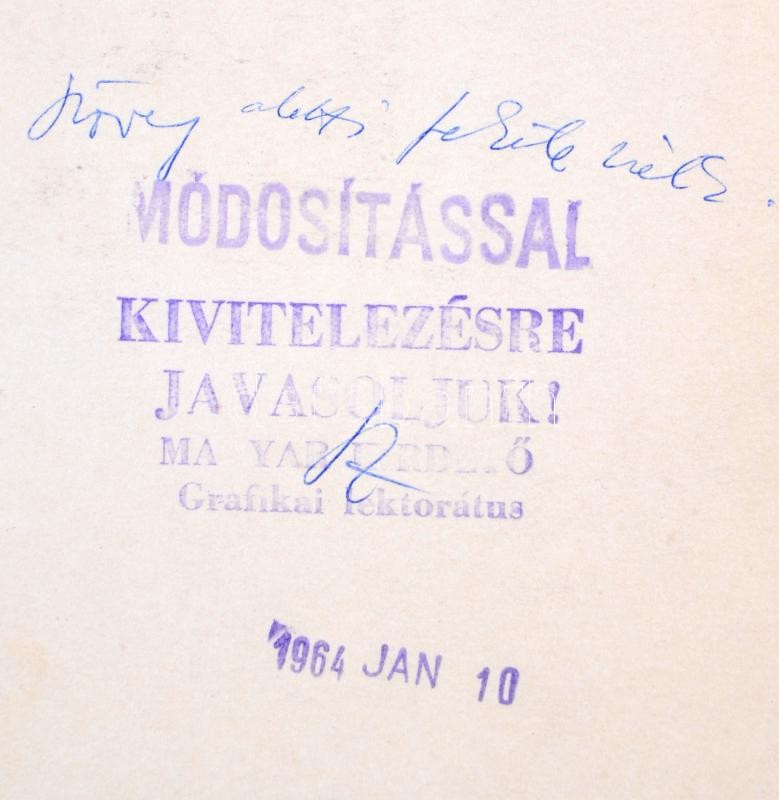 szöveg alatti fekete nélk.
MÓDOSÍTÁSSAL
KIVITELEZÉSRE
JAVASOLJUK!
MA YAR RDETŐ
Grafikai lektorátus
1964 JAN 10